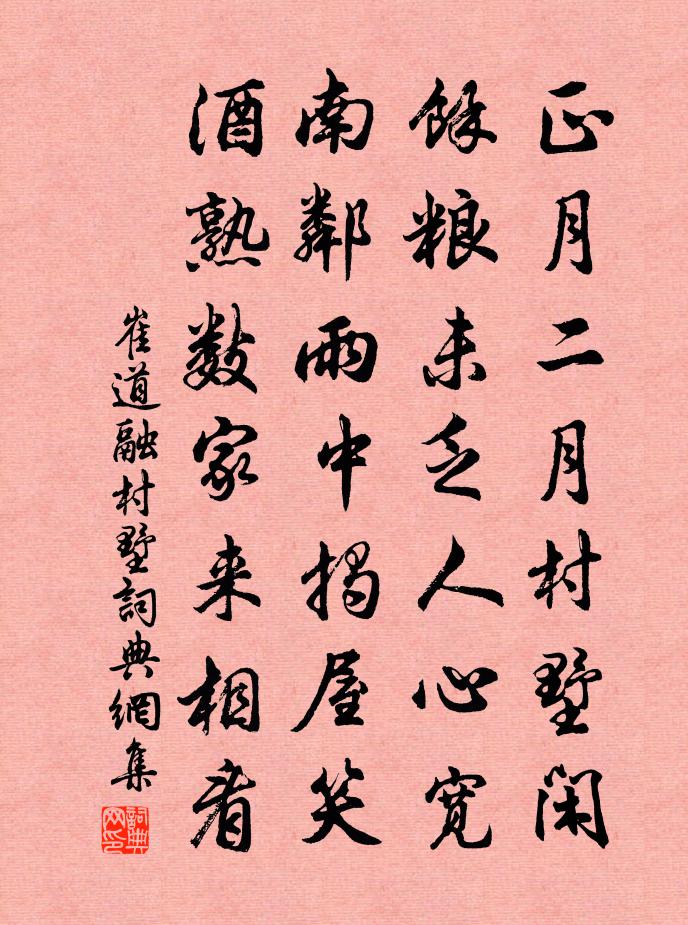 正月二月村墅閑
餘粮未乏人心寬
南鄰雨中揭屋笑
酒熟數家来相看
崔道融村墅詞典網集
詞典网印